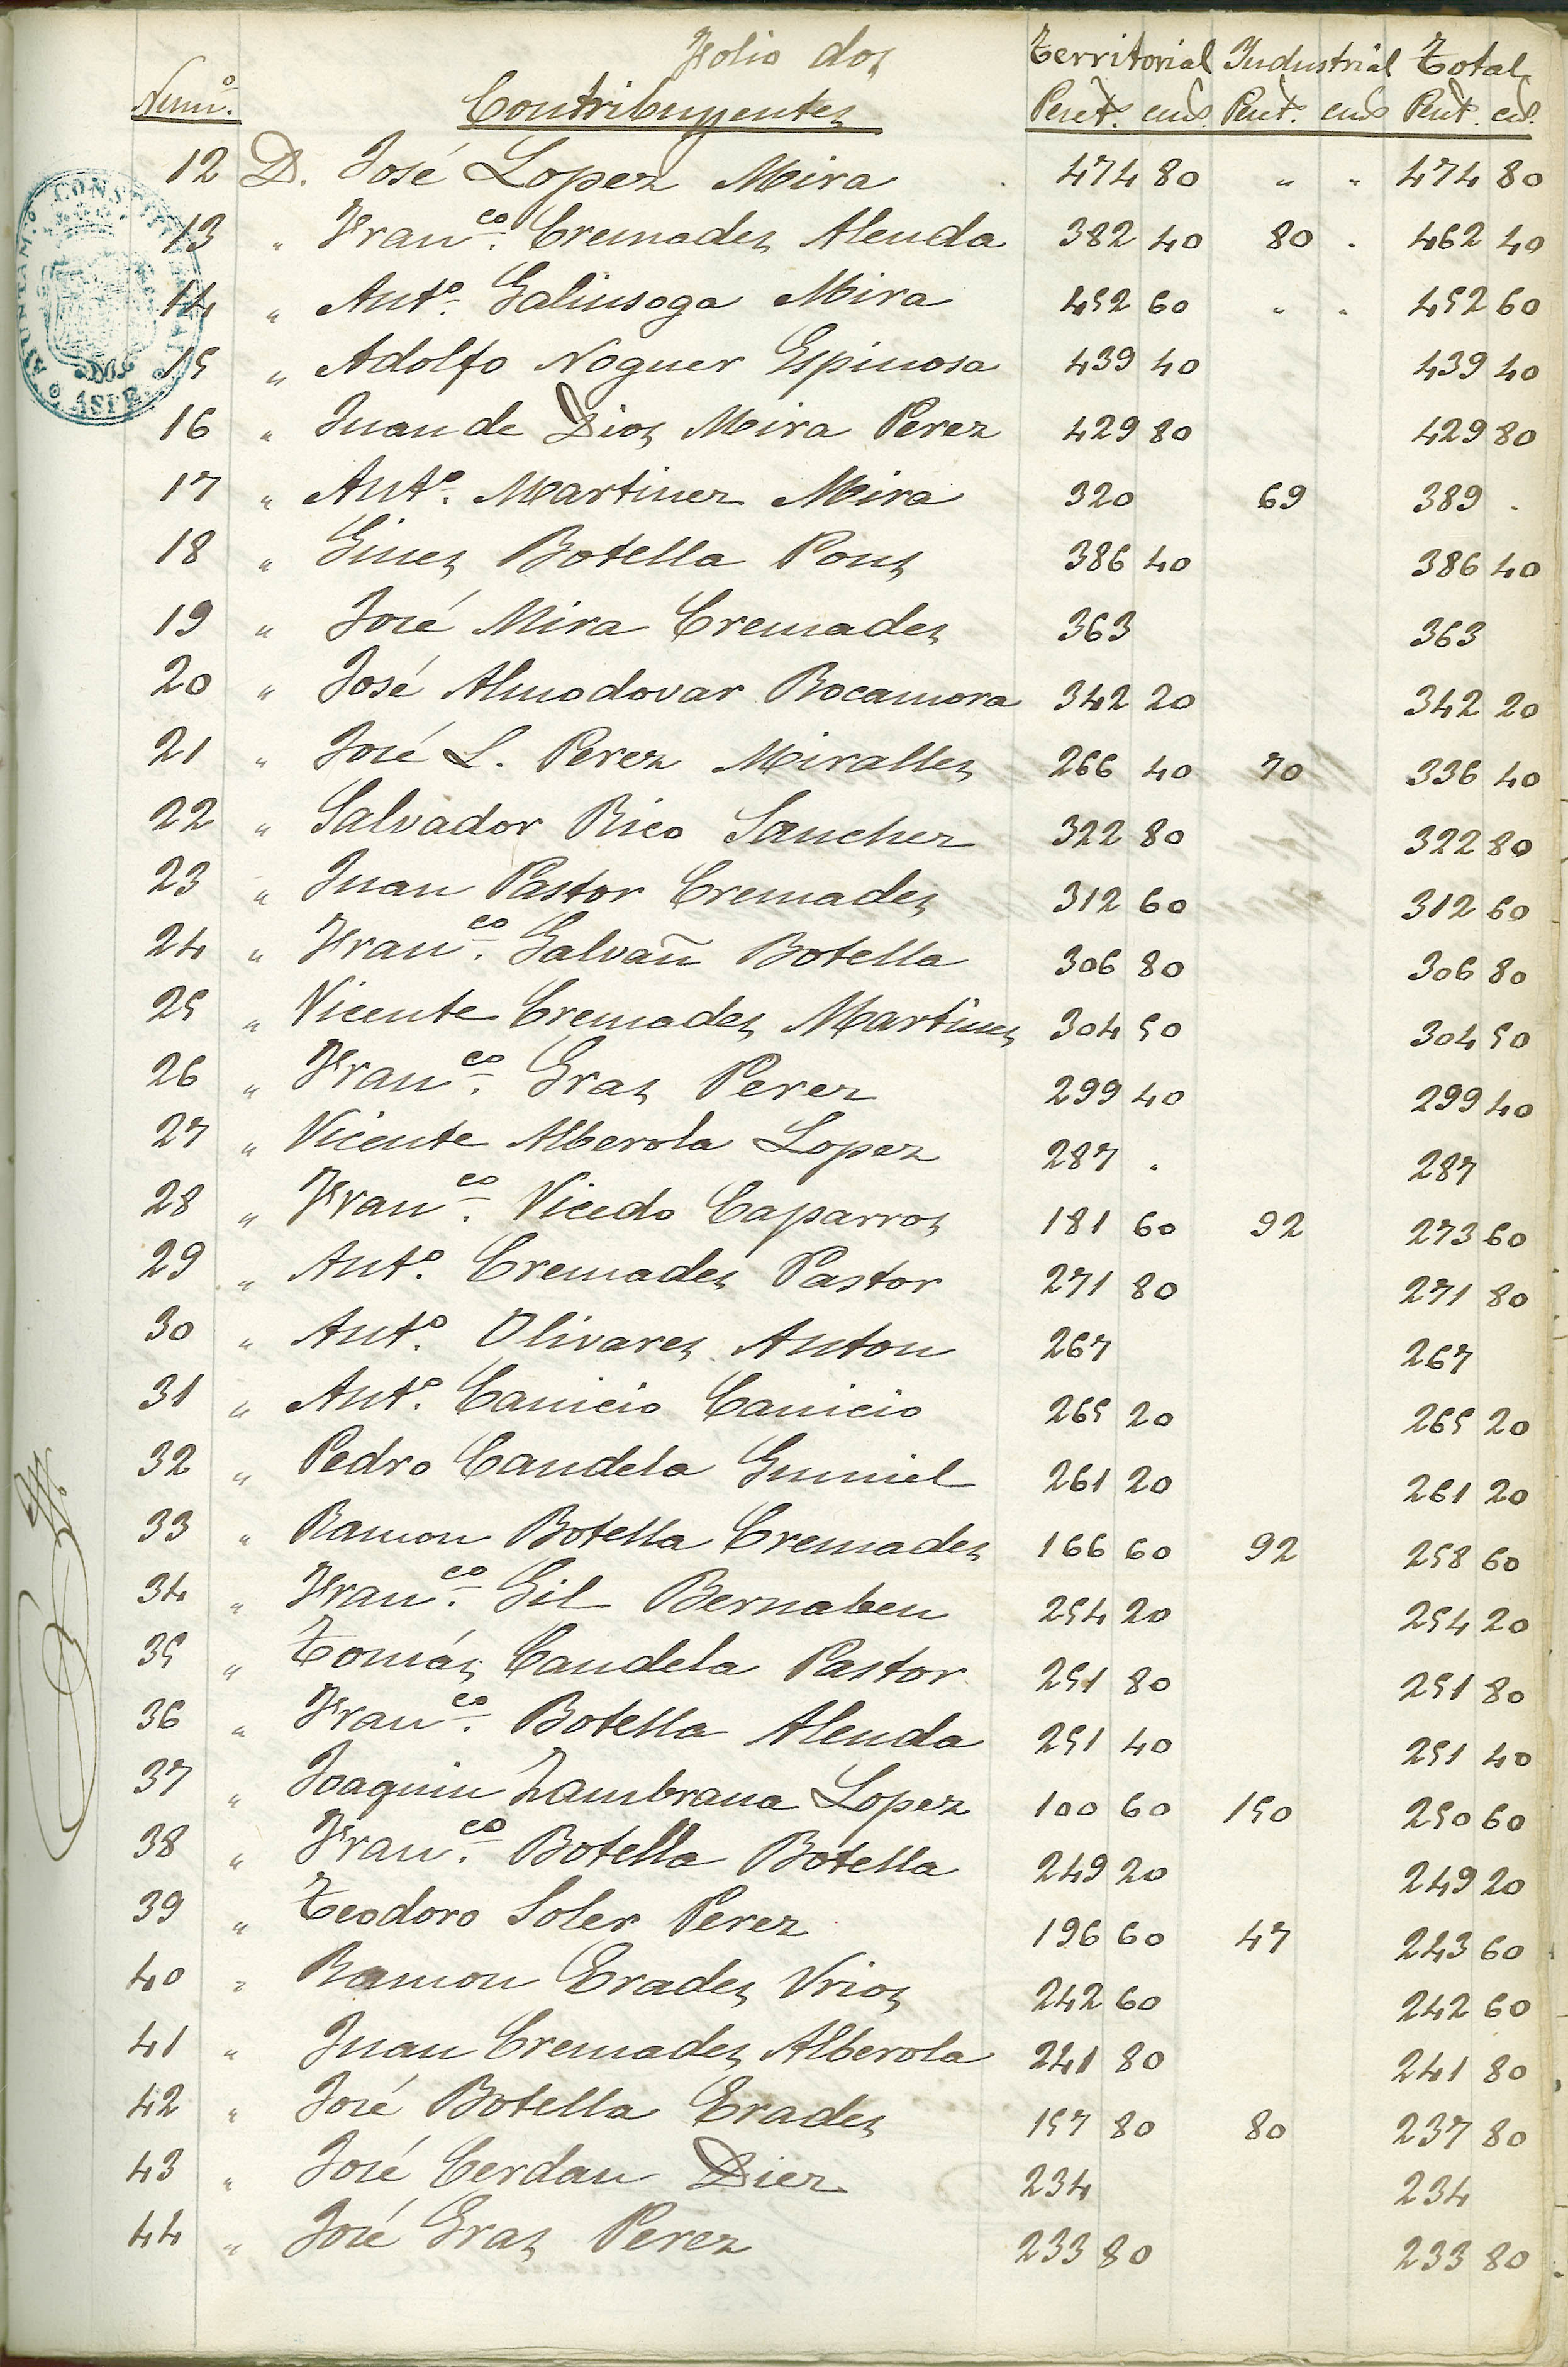 Folio dos
Territorial Industrial Total
Numº. Contribuyentes Peset. cms. Peset. cms Peset. cs.
12 D. José Lopez Mira 474 80 " " 474 80
13 " Franco. Cremades Alenda 382 40 80 . 462 40
14 " Antº. Galinsoga Mira 452 60 " " 452 60
15 " Adolfo Noguer Espinosa 439 40 439 40
16 " Juan de Dios Mira Perez 429 80 429 80
17 " Antº. Martinez Mira 320 69 389 .
18 " Gines Botella Pons 386 40 386 40
19 " José Mira Cremades 363 363
20 " José Almodovar Bocamora 342 20 342 20
21 " José L. Perez Miralles 266 40 70 336 40
22 " Salvador Rico Sanchez 322 80 322 80
23 " Juan Pastor Cremades 312 60 312 60
24 " Franco. Galvañ Botella 306 80 306 80
25 " Vicente Cremades Martinez 304 50 304 50
26 " Franco. Gras Perez 299 40 299 40
27 " Vicente Alberola Lopez 287 . 287
28 " Franco. Vicedo Caparros 181 60 92 273 60
29 " Antº. Cremades Pastor 271 80 271 80
30 " Antº. Olivares Anton 267 267
31 " Antº. Canicio Canicio 265 20 265 20
32 " Pedro Candela Gumiel 261 20 261 20
33 " Ramon Botella Cremades 166 60 92 258 60
34 " Franco. Gil Bernabeu 254 20 254 20
35 " Tomás Candela Pastor 251 80 251 80
36 " Franco. Botella Alenda 251 40 251 40
37 " Joaquin Zambrana Lopez 100 60 150 250 60
38 " Franco. Botella Botella 249 20 249 20
39 " Teodoro Soler Perez 196 60 47 243 60
40 " Ramon Erades Vrios 242 60 242 60
41 " Juan Cremades Alberola 241 80 241 80
42 " José Botella Erades 157 80 80 237 80
43 " José Cerdan Diez 234 234
44 " José Gras Perez 233 80 233 80
AYUNTAM.º CONSTIT
ASPE